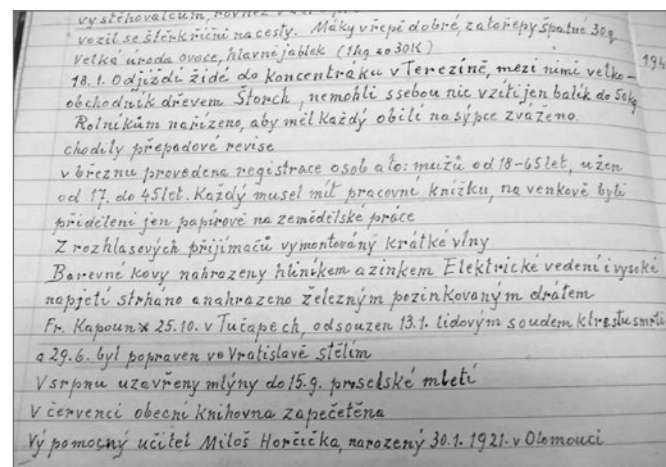 vystěhovalcům, rovněž
vozil se štěrk říční na cesty. Máky v řepě dobré, zato řepy špatné 30q
velká úroda ovoce, hlavně jablek (1kg za 30K)
194
18.1. Odjíždí židé do koncentráku v Terezíně, mezi nimi velko-
obchodník dřevem Štorch, nemohli ssebou nic vzíti jen balík do 50kg
Rolníkům nařízeno, aby měl každý obilí na sýpce zváženo.
chodily přepadové revise
v březnu provedena registrace osob a to: mužů od 18-65 let, u žen
od 17. do 45 let. Každý musel mít pracovní knížku, na venkově byli
přiděleni jen papírově na zemědělské práce
Z rozhlasových přijímačů vymontovány krátké vlny
Barevné kovy nahrazeny hliníkem a zinkem Elektrické vedení i vysoké
napjetí strháno a nahrazeno železným pozinkovaným drátem
Fr. Kapoun * 25.10. v Tučapech, odsouzen 13.1. lidovým soudem k trestu smrti
a 29.6. byl popraven ve Vratislavě stětím
V srpnu uzavřeny mlýny do 15.9. pro selské mletí
v červenci obecní knihovna zapečetěna
Výpomocný učitel Miloš Horčička, narozený 30.1. 1921. v Olomouci